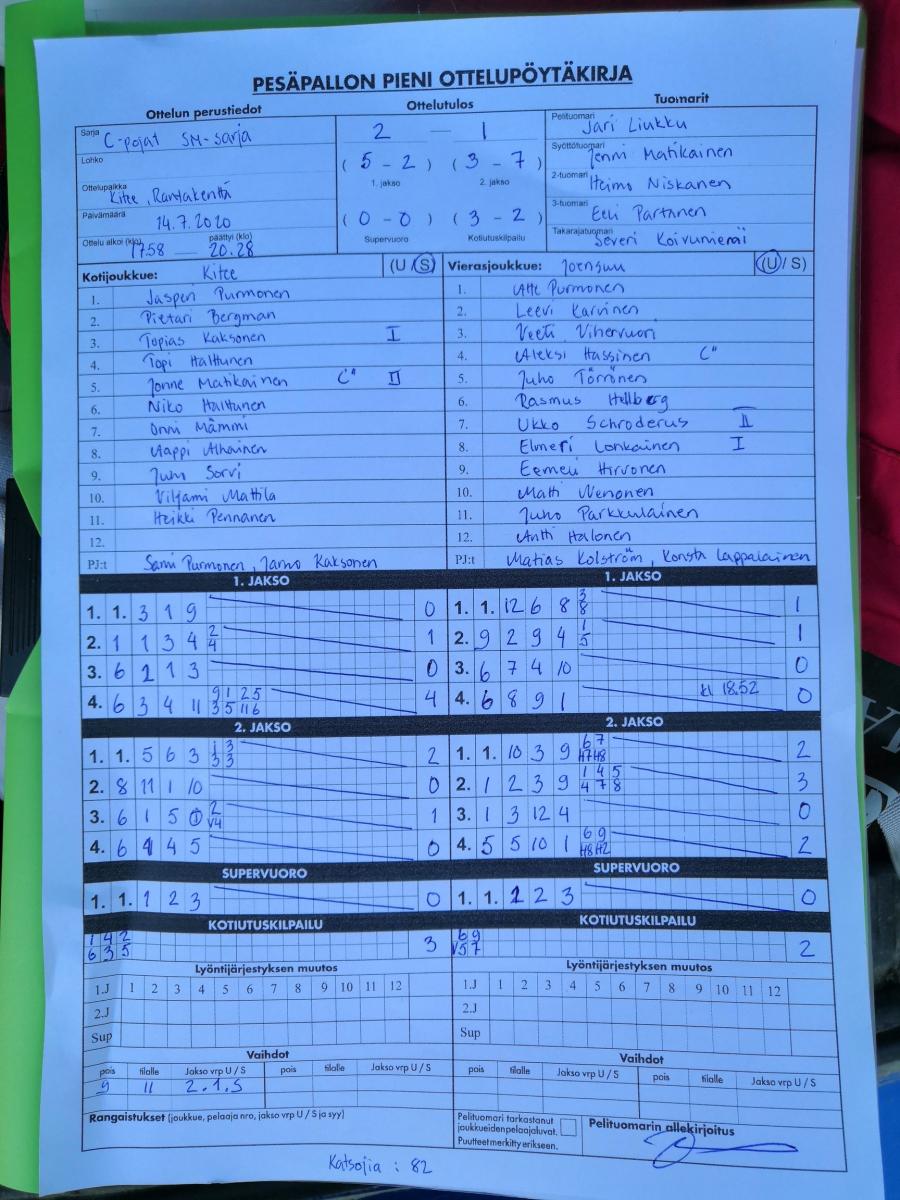 PESÄPALLON PIENI OTTELUPÖYTÄKIRJA
Ottelun perustiedot Ottelutulos Tuomarit
Sarja C-pojat SM-sarja
Lohko
Ottelupaikka Kitee, Rantakenttä
Päivämäärä 14.7.2020
Ottelu alkoi (klo) 17.58 — päättyi (klo) 20.28
2 — 1
(5 - 2) (3 - 7)
1. jakso 2. jakso
(0 - 0) (3 - 2)
Supervuoro Kotiutuskilpailu
Pelituomari Jari Liukku
Syöttötuomari Jenni Matikainen
2-tuomari Heimo Niskanen
3-tuomari Eeli Partanen
Takarajatuomari Severi Koivuniemi
Kotijoukkue: Kitee (U / S)
1. Jasperi Purmonen
2. Pietari Bergman
3. Topias Kaksonen I
4. Topi Halttunen
5. Jonne Matikainen C" II
6. Niko Halttunen
7. Onni Mämmi
8. Aappi Alhainen
9. Juho Sorvi
10. Viljami Mattila
11. Heikki Pennanen
12.
PJ:t Sami Purmonen, Jarno Kaksonen
Vierasjoukkue: Joensuu (U / S)
1. Atte Purmonen
2. Leevi Karvinen
3. Veeti Vihervuori
4. Aleksi Hassinen C"
5. Juho Törrönen
6. Rasmus Hellberg
7. Ukko Schroderus II
8. Elmeri Lonkainen I
9. Eemeli Hirvonen
10. Matti Nenonen
11. Juho Parkkulainen
12. Antti Halonen
PJ:t Matias Kolström, Konsta Lappalainen
1. JAKSO
1. 1. 3 1 9 0
2. 1 1 3 4 2 4 1
3. 6 2 1 3 0
4. 6 3 4 11 9 1 2 5 3 5 11 6 4
1. JAKSO
1. 1. 12 6 8 3 8 1
2. 9 2 9 4 1 5 1
3. 6 7 4 10 0
4. 6 8 9 1 kl 18.52 0
2. JAKSO
1. 1. 5 6 3 1 3 3 3 2
2. 8 11 1 10 0
3. 6 1 5 1 2 V4 1
4. 6 1 4 5 0
2. JAKSO
1. 1. 10 3 9 6 7 H7 H8 2
2. 1 2 3 9 1 4 5 4 7 8 3
3. 1 3 12 4 0
4. 5 5 10 1 6 9 H8 H2 2
SUPERVUORO
1. 1. 1 2 3 0
SUPERVUORO
1. 1. 1 2 3 0
KOTIUTUSKILPAILU
1 4 2
6 3 5 3
KOTIUTUSKILPAILU
6 9
V5 7 2
Lyöntijärjestyksen muutos
1.J 1 2 3 4 5 6 7 8 9 10 11 12
2.J
Sup
Lyöntijärjestyksen muutos
1.J 1 2 3 4 5 6 7 8 9 10 11 12
2.J
Sup
Vaihdot
pois tilalle Jakso vrp U / S pois tilalle Jakso vrp U / S
9 11 2.1.S
Vaihdot
pois tilalle Jakso vrp U / S pois tilalle Jakso vrp U / S
Rangaistukset (joukkue, pelaaja nro, jakso vrp U / S ja syy)
Pelituomari tarkastanut
joukkueiden pelaajaluvat.
Puutteet merkitty erikseen.
Pelituomarin allekirjoitus
Katsojia : 82